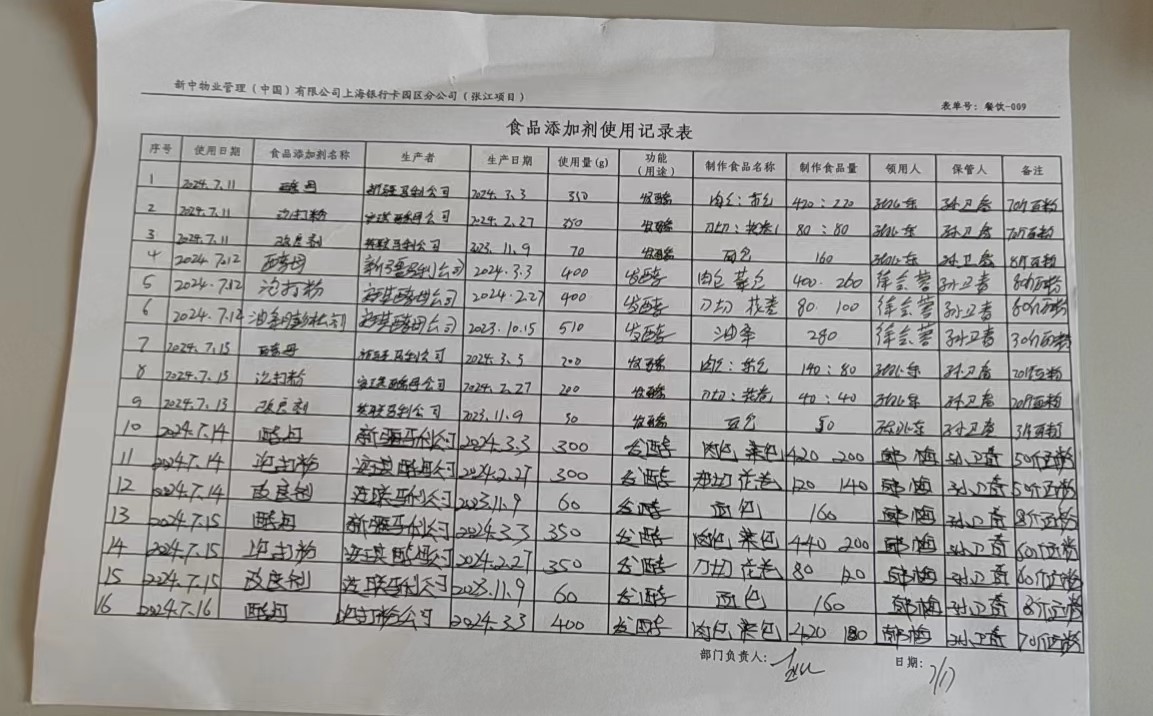 新中物业管理（中国）有限公司上海银行卡园区分公司（张江项目）
表单号：餐饮-009
食品添加剂使用记录表
序号 使用日期 食品添加剂名称 生产者 生产日期 使用量(g) 功能（用途） 制作食品名称 制作食品量 领用人 保管人 备注
1 2024.7.11 酵母 新疆马利公司 2024.3.3 350 发酵 肉包：菜包 420：220 孙卫香 70斤面粉
2 2024.7.11 泡打粉 安琪酵母公司 2024.2.27 350 发酵 刀切：花卷 80：80 孙卫香 70斤面粉
3 2024.7.11 改良剂 马利公司 2023.11.9 70 发酵 面包 160 孙卫香 8斤面粉
4 2024.7.12 酵母 新疆马利公司 2024.3.3 400 发酵 肉包 菜包 400. 260 徐会蓉 孙卫香 80斤面粉
5 2024.7.12 泡打粉 安琪酵母公司 2024.2.27 400 发酵 刀切 花卷 80. 100 徐会蓉 孙卫香 80斤面粉
6 2024.7.12 油条膨松剂 安琪酵母公司 2023.10.15 510 发酵 油条 280 徐会蓉 孙卫香 30斤面粉
7 2024.7.13 酵母 新疆马利公司 2024.3.3 200 发酵 肉包：菜包 140：80 孙卫香 20斤面粉
8 2024.7.13 泡打粉 安琪酵母公司 2024.2.27 200 发酵 刀切：花卷 40：40 孙卫香 20斤面粉
9 2024.7.13 改良剂 马利公司 2023.11.9 30 发酵 面包 50 孙卫香 3斤面粉
10 2024.7.14 酵母 新疆马利公司 2024.3.3 300 发酵 肉包 菜包 420 200 孙卫香 50斤面粉
11 2024.7.14 泡打粉 安琪酵母公司 2024.2.27 300 发酵 刀切 花卷 120 140 孙卫香 50斤面粉
12 2024.7.14 改良剂 马利公司 2023.11.9 60 发酵 面包 160 孙卫香 8斤面粉
13 2024.7.15 酵母 新疆马利公司 2024.3.3 350 发酵 肉包 菜包 440 200 孙卫香 60斤面粉
14 2024.7.15 泡打粉 安琪酵母公司 2024.2.27 350 发酵 刀切 花卷 80 120 孙卫香 60斤面粉
15 2024.7.15 改良剂 马利公司 2023.11.9 60 发酵 面包 160 孙卫香 8斤面粉
16 2024.7.16 酵母 泡打粉公司 2024.3.3 400 发酵 肉包 菜包 420 180 孙卫香 70斤面粉
部门负责人： 日期：7/17